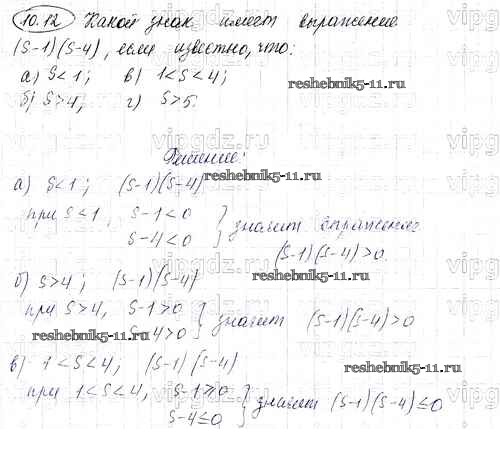 10.12 Какой знак имеет выражение
(S-1)(S-4), если известно, что:
а) S<1; в) 1<S<4;
б) S>4, г) S>5.
reshebnik5-11.ru
Решение:
reshebnik5-11.ru
а) S<1; (S-1)(S-4)
при S<1, S-1<0
S-4<0 } значит выражение
(S-1)(S-4)>0
reshebnik5-11.ru
б) S>4; (S-1)(S-4)
при S>4, S-1>0
S-4>0 } значит (S-1)(S-4)>0
reshebnik5-11.ru
в) 1<S<4; (S-1)(S-4)
reshebnik5-11.ru
при 1<S<4, S-1≥0
S-4≤0 } значит (S-1)(S-4)≤0